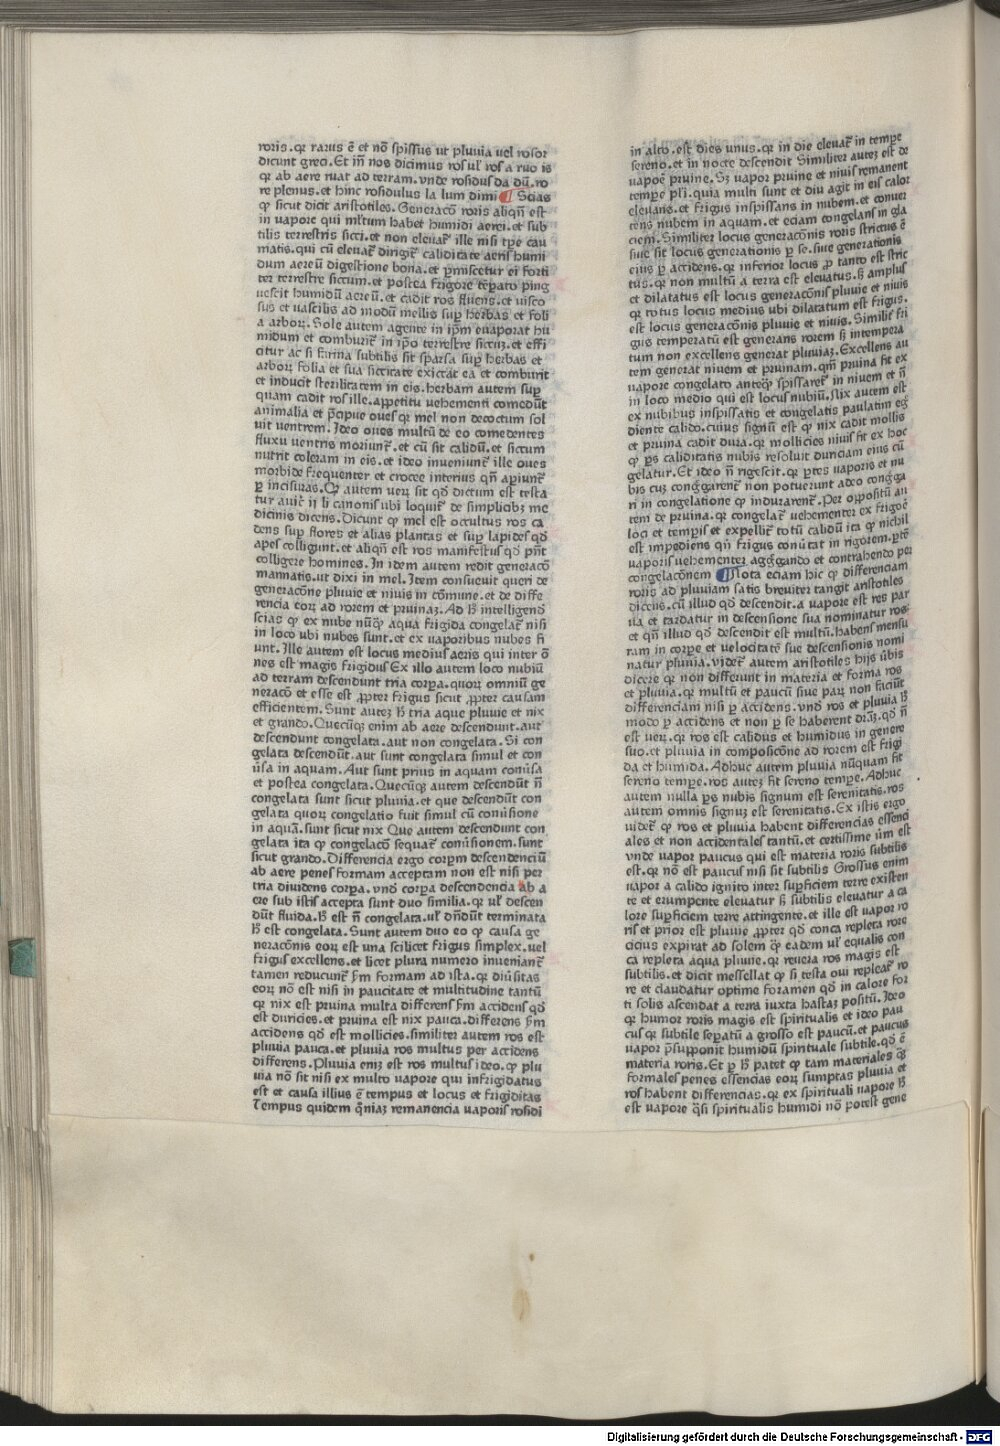 roris.qr rarus ē et nō spissus ut pluuia uel rosor
dicunt greci.Et iñ nos dicimus ros ul̄ ros a ruo is
qr ab aere ruat ad terram.vnde rosidus da dū.ro
re plenus.et hinc rosidulus la lum dimi ¶ Scias
qꝫ sicut dicit aristotiles.Generacō roris aliqñ est
in vapore qui ml̄tum habet humidi aerei.et sub
tilis terrestris sicci.et non eleuat̄ ille nisi tꝑe cau
matis.qui cū eleuat̄ dirigit̄ caliditate aeris humi
dum aereū digestione bona.et ꝑmiscetur ei forti
ter terrestre siccum.et postea frigore tēꝑato ping
uescit humidū aereū.et cadit ros fluens.et uisco
sus et uascilis ad modū mellis suꝑ herbas et foli
a arboꝝ.Sole autem agente in ip̄m euaporat hu
midum et comburit̄ in ip̄o terrestre siccuꝫ.et effi
citur ac si farina subtilis sit sparsa suꝑ herbas et
arboꝝ folia et sua siccitate exiccat ea et comburit
et inducit sterilitatem in eis.herbam autem suꝑ
quam cadit ros ille.appetitu uehementi comedūt
animalia et p̄cipue oues qr mel non decoctum sol
uit uentrem.Ideo oues multū de eo comedentes
fluxu uentris moriunt̄.et cū sit calidū.et siccum
nutrit coleram in eis.et ideo inueniunt̄ ille oues
morbide frequenter et crocee interius qñ aꝑiunt̄
ꝑ incisuras.Qꝫ autem ueꝝ sit qd̄ dictum est testa
tur auic̄ ij li canonis ubi loquit̄ de simplicibꝫ me
dicinis dicens.Dicunt qꝫ mel est occultus ros ca
dens suꝑ flores et alias plantas et suꝑ lapides qd̄
apes colligunt.et aliqñ est ros manifestus qd̄ pn̄t
colligere homines.In idem autem redit generacō
mannatis.ut dixi in mel.Item consueuit queri de
generacōne pluuie et niuis in cōmune.et de diffe
rencia eoꝝ ad rorem et pruinaꝫ.Ad h̄ intelligend̄
scias qꝫ ex nube nūqꝫ aqua frigida congelat̄ nisi
in loco ubi nubes sunt.et ex uaporibus nubes fi
unt.Ille autem est locus medius aeris qui inter ō
nes est magis frigidus Ex illo autem loco nubiū
ad terram descendunt tria corꝑa.quoꝝ omniū ge
neracō et esse est ꝓpter frigus sicut ꝓpter causam
efficientem.Sunt auteꝫ h̄ tria aque pluuie et nix
et grando.Quecūqꝫ enim ab aere descendunt.aut
descendunt congelata.aut non congelata.Si con
gelata descendūt.aut sunt congelata simul et con
uisa in aquam.Aut sunt prius in aquam conuisa
et postea congelata.Quecūqꝫ autem descendūt ñ
congelata sunt sicut pluuia.et que descendūt con
gelata quoꝝ congelatio fuit simul cū conuisione
in aquā.sunt sicut nix Que autem descendunt con
gelata ita qꝫ congelacō sequat̄ conuisionem.sunt
sicut grando.Differencia ergo corꝑm descendenciū
ab aere penes formam acceptam non est nisi per
tria diuidens corꝑa.vnd̄ corꝑa descendencia ab a
ere sub istis accepta sunt duo similia.qr ul̄ descen
dūt fluida.h̄ est ñ congelata.ul̄ dn̄dūt terminata
h̄ est congelata.Sunt autem duo eo qꝫ causa ge
neracōnis eoꝝ est una scilicet frigus simplex.vel
frigus excellens.et licet plura numero inueniant̄
tamen reducunt̄ ẜm formam ad ista.qr diūsitas
eoꝝ nō est nisi in paucitate et multitudine tantū
qr nix est pruina multa differens ẜm accidens qd̄
est duricies.et pruina est nix pauca.differens ẜm
accidens qd̄ est mollicies.similiter autem ros est
pluuia pauca.et pluuia ros multus per accidens
differens.Pluuia eniꝫ est ros multus ideo.qꝫ plu
uia nō fit nisi ex multo uapore qui infrigidatus
est et causa illius ē tempus et locus et frigiditas
Tempus quidem qm̄iaꝫ remanencia uaporis rosidi
in alto.est dies unus.qr in die eleuat̄ in tempe
sereno.et in nocte descendit Similiter auteꝫ est de
uapoē pruine.Sꝫ vapor pruine et niuis remanent
tempe pl̄i.quia multi sunt et diu agit in eis calor
eleuans.et frigus inspissans in nubem.et conuer
tens nubem in aquam.et eciam congelans in gla
ciem.Similiter locus generacōnis roris strictus ē
siue sit locus generationis ꝑ se.siue generationis
eius ꝑ accidens.qr inferior locus ꝓ tanto est stric
tus.qr non multū a terra est eleuatus.sꝫ amplus
et dilatatus est locus generacōnis pluuie et niuis
qr totus locus medius ubi dilatatum est frigus.
est locus generacōnis pluuie et niuis.Similit̄ fri
gus temperatū est generans rorem sꝫ intempera
tum non excellens generat pluuiaꝫ.Excellens au
tem generat niuem et pruinam.qm̄ pruina fit ex
uapore congelato anteqꝫ spissaret̄ in niuem et ñ
in loco medio qui est locus nubiū.Nix autem est
ex nubibus inspissatis et congelatis paulatim eg̃
diente calido.cuius signū est qꝫ nix cadit mollis
et pruina cadit dura.qr mollicies niuis fit ex hoc
qꝫ ꝑs caliditatis nubis resoluit duriciam eius cū
gelatur.Et ideo ñ rigescit.qr ꝑtes uaporis et nu
bis cuꝫ cong̃garent̄ non potuerunt adeo cong̃ga
ri in congelatione qꝫ indurarent̄.Per oppositū au
tem de pruina.qr congelat̄ uehementer ex frigoē
loci et tempis et expellit̄ totū calidū ita qꝫ nichil
est impediens qñ frigus conūtat in rigorem.ꝑtē
uaporis uehementer agg̃gando et contrahendo per
congelacōnem ¶ Nota eciam hic qꝫ differenciam
roris ad pluuiam satis breuiter tangit aristotiles
dicens.cū illud qd̄ descendit.a uapore est res par
ua et tardatur in descensione sua nominatur ros.
et qñ illud qd̄ descendit est multū.habens mensu
ram in corꝑe et uelocitatē sue descensionis nomi
natur pluuia.videt̄ autem aristotiles hijs ūbis
dicere qr non differunt in materia et forma ros
et pluuia.qr multū et paucū siue parꝫ non faciūt
differenciam nisi ꝑ accidens.vnd̄ ros et pluuia h̄
modo ꝑ accidens et non ꝑ se haberent dr̄aꝫ.qd̄ ñ
est ueꝝ.qr ros est calidus et humidus in genere
suo.et pluuia in composicōne ad rorem est frigi
da et humida.Adhuc autem pluuia nūquam fit
sereno tempe.ros auteꝫ fit sereno tempe.Adhuc
autem nulla ꝑs nubis signum est serenitatis.ros
autem omnis signuꝫ est serenitatis.Ex istis ergo
uidet̄ qꝫ ros et pluuia habent differencias essenci
ales et non accidentales tantū.et certissime ūm est
vnde uapor paucus qui est materia roris subtilis
est.qr nō est paucus nisi sit subtilis Grossus enim
uapor a calido ignito inter suꝑficiem terre existen
te et erumpente eleuatur sꝫ subtilis eleuatur a ca
lore suꝑficiem terre attingente.et ille est uapor ro
ris et prior est pluuie ꝓpter qd̄ conca repleta rore
cicius expirat ad solem qꝫ eadem ul̄ equalis con
ca repleta aqua pluuie.qr reuera ros magis est
subtilis.et dicit messellat qꝫ si testa oui repleat̄ ro
re et claudatur optime foramen qd̄ in calore for
ti solis ascendat a terra iuxta hastaꝫ positū.Ideo
qr humor roris magis est spiritualis et ideo pau
cus qr subtile seꝑatū a grosso est paucū.et paucus
uapor p̄supponit humidū spirituale subtile.qd̄ ē
materia roris.Et ꝑ h̄ patet qꝫ tam materiales qꝫ
formales penes essencias eoꝝ sumptas pluuia et
ros habent differencias.qr ex spirituali uapore h̄
est uapore q̄si spiritualis humidi nō potest gene
Digitalisierung gefördert durch die Deutsche Forschungsgemeinschaft - DFG